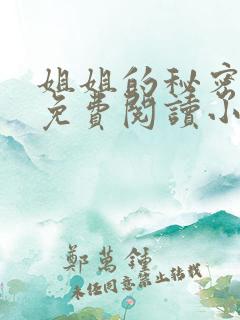 姐姐的秘密
免費閱讀小
鄭萬鍾
未经同意禁止转载